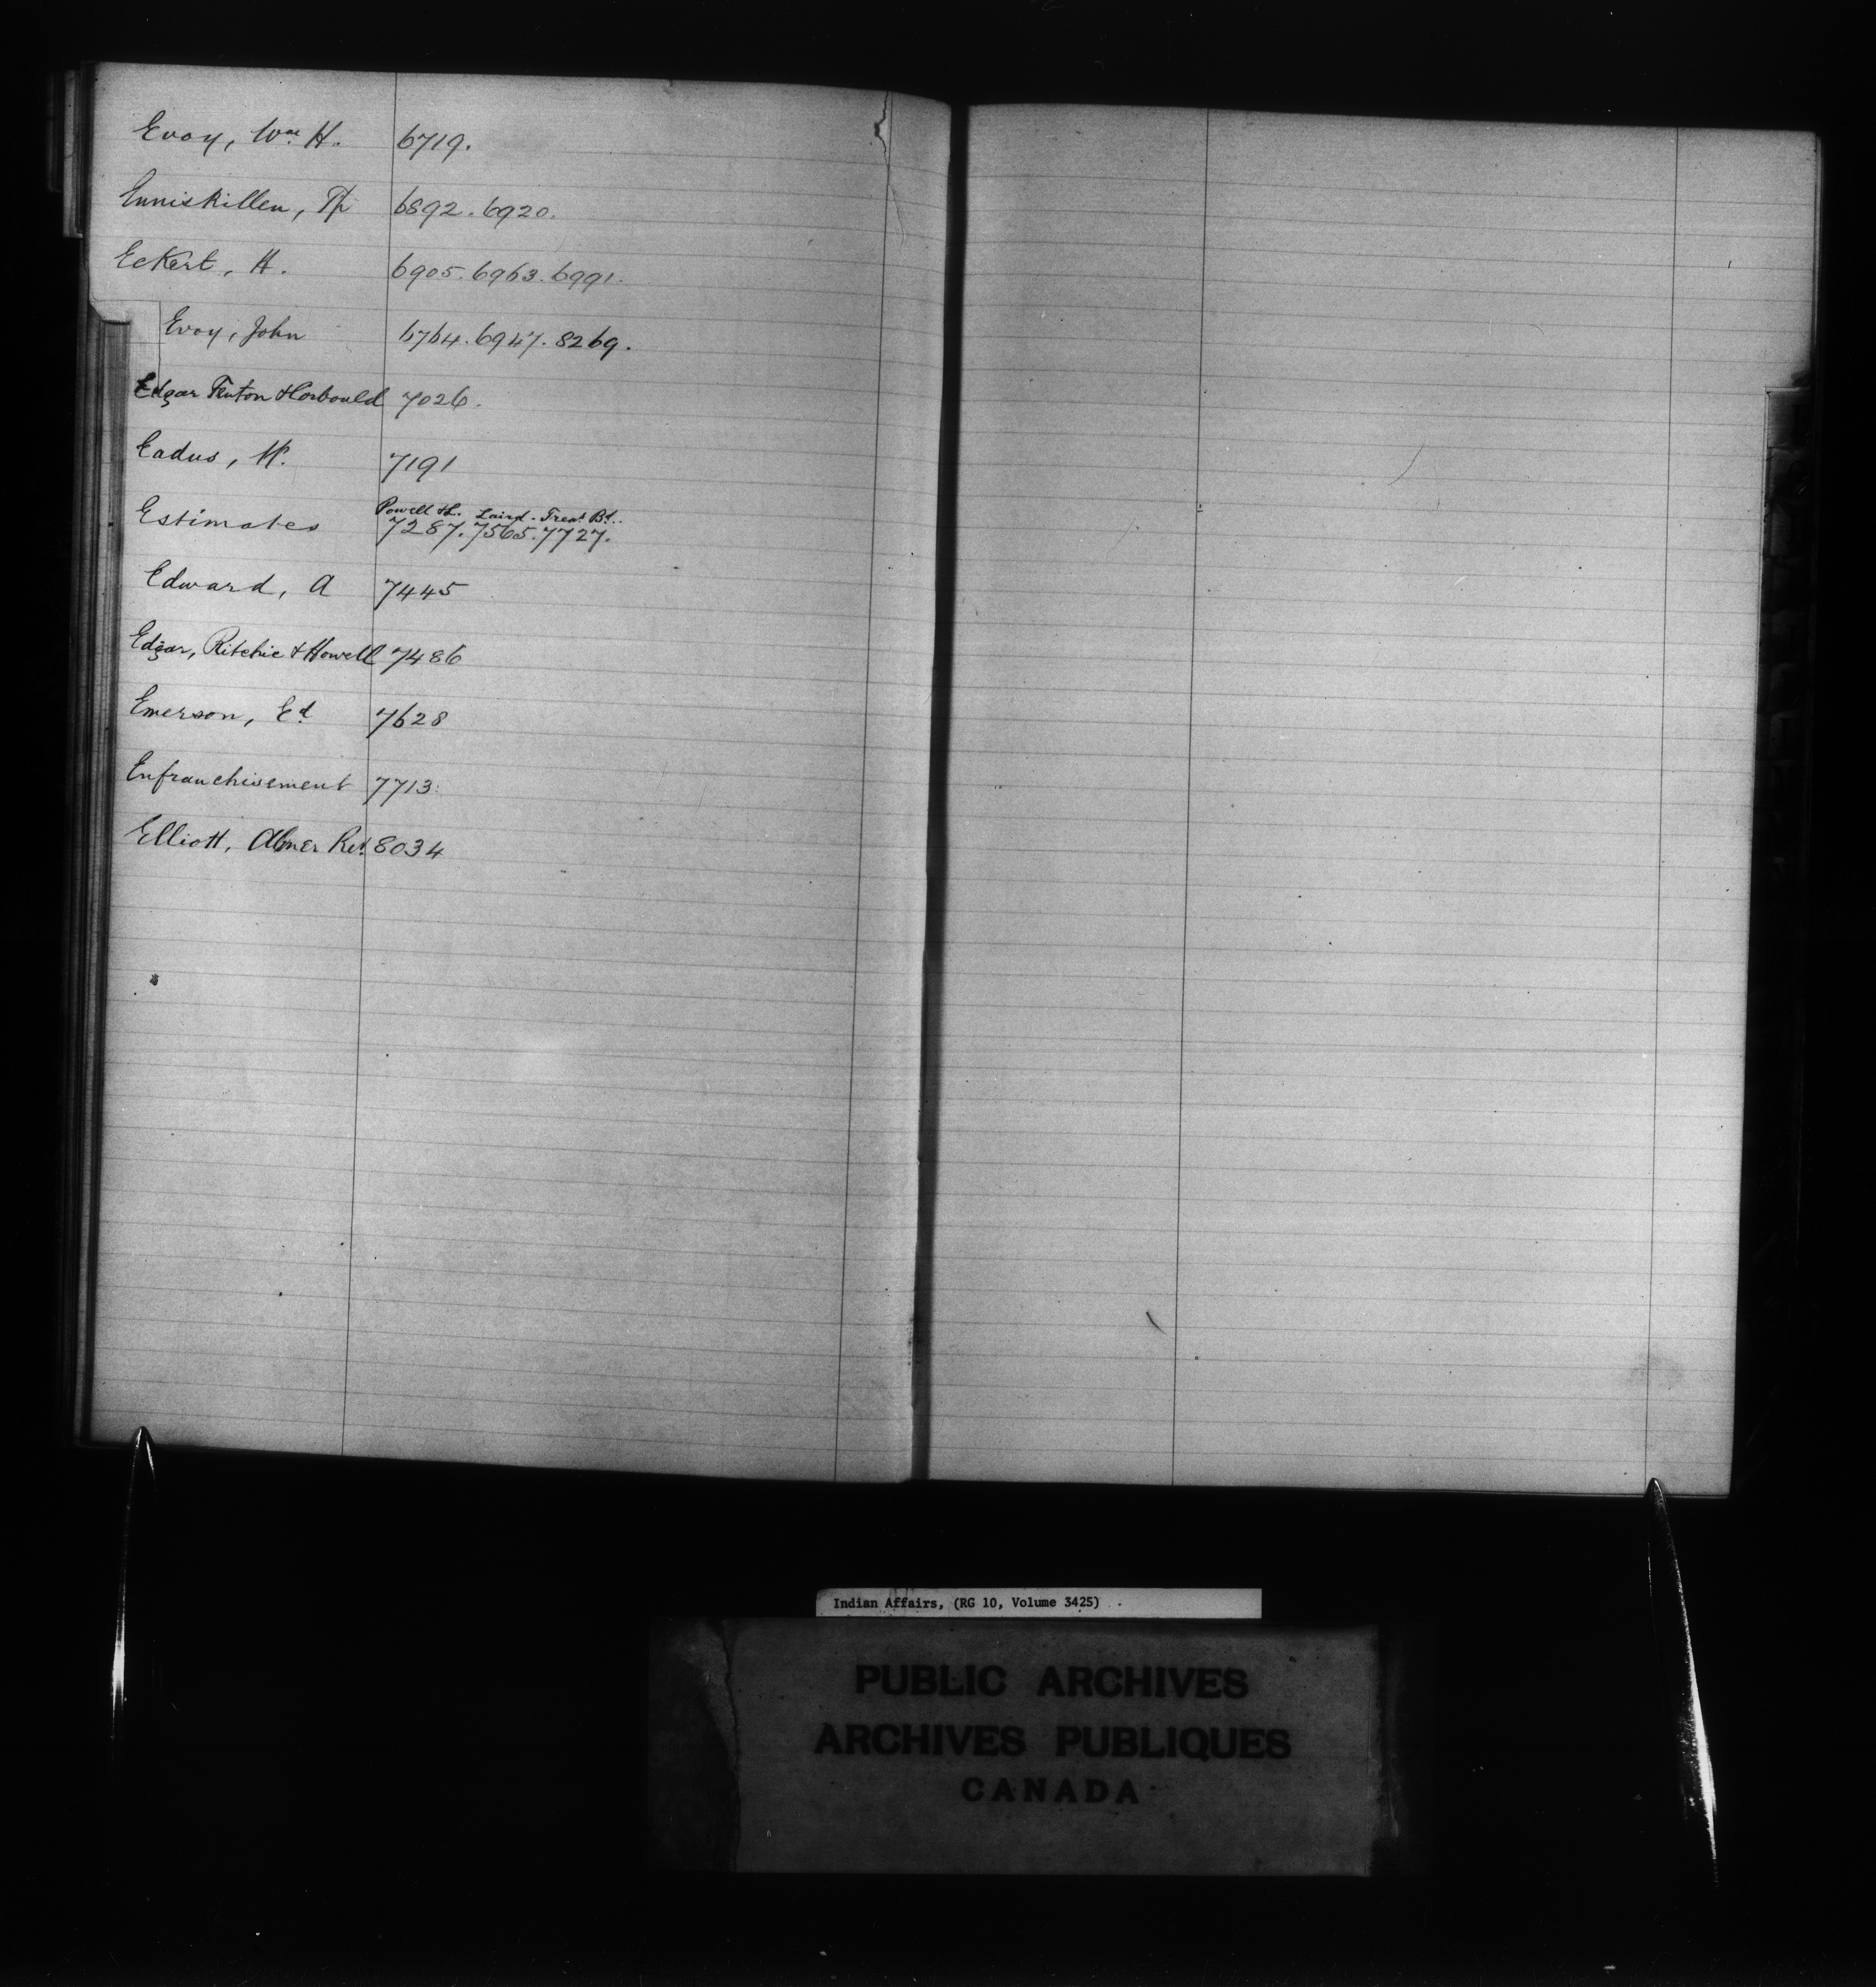 Evoy, Wm. H. 6719.
Enniskillen, Tp 6892. 6920.
Eckert, H. 6905. 6963. 6991.
Evoy, John 6764. 6947. 8269.
Edgar Fenton & Corbould 7026.
Eadus, 7191
Powell &L. Laird - Treas Bd..
Estimates 7287. 7565. 7727.
Edward, A 7445
Edgar, Ritchie & Howell 7486
Emerson, Ed 7628
Enfranchisement 7713.
Elliott, Abner 8034
Indian Affairs, (RG 10, Volume 3425)
PUBLIC ARCHIVES
ARCHIVES PUBLIQUES
CANADA